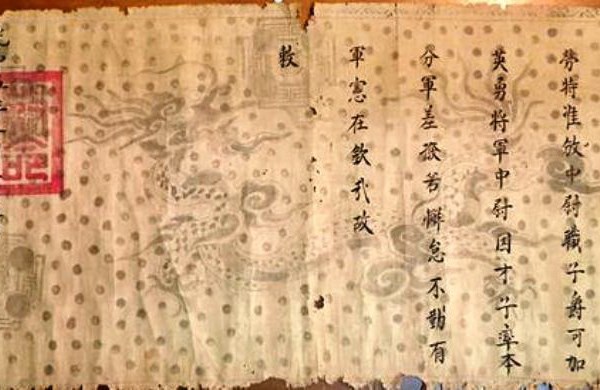 勞特准中尉職子爵可加
英勇將軍中尉因才子率本
分軍差撥若懈怠不勤有
軍憲在欽哉故
敕